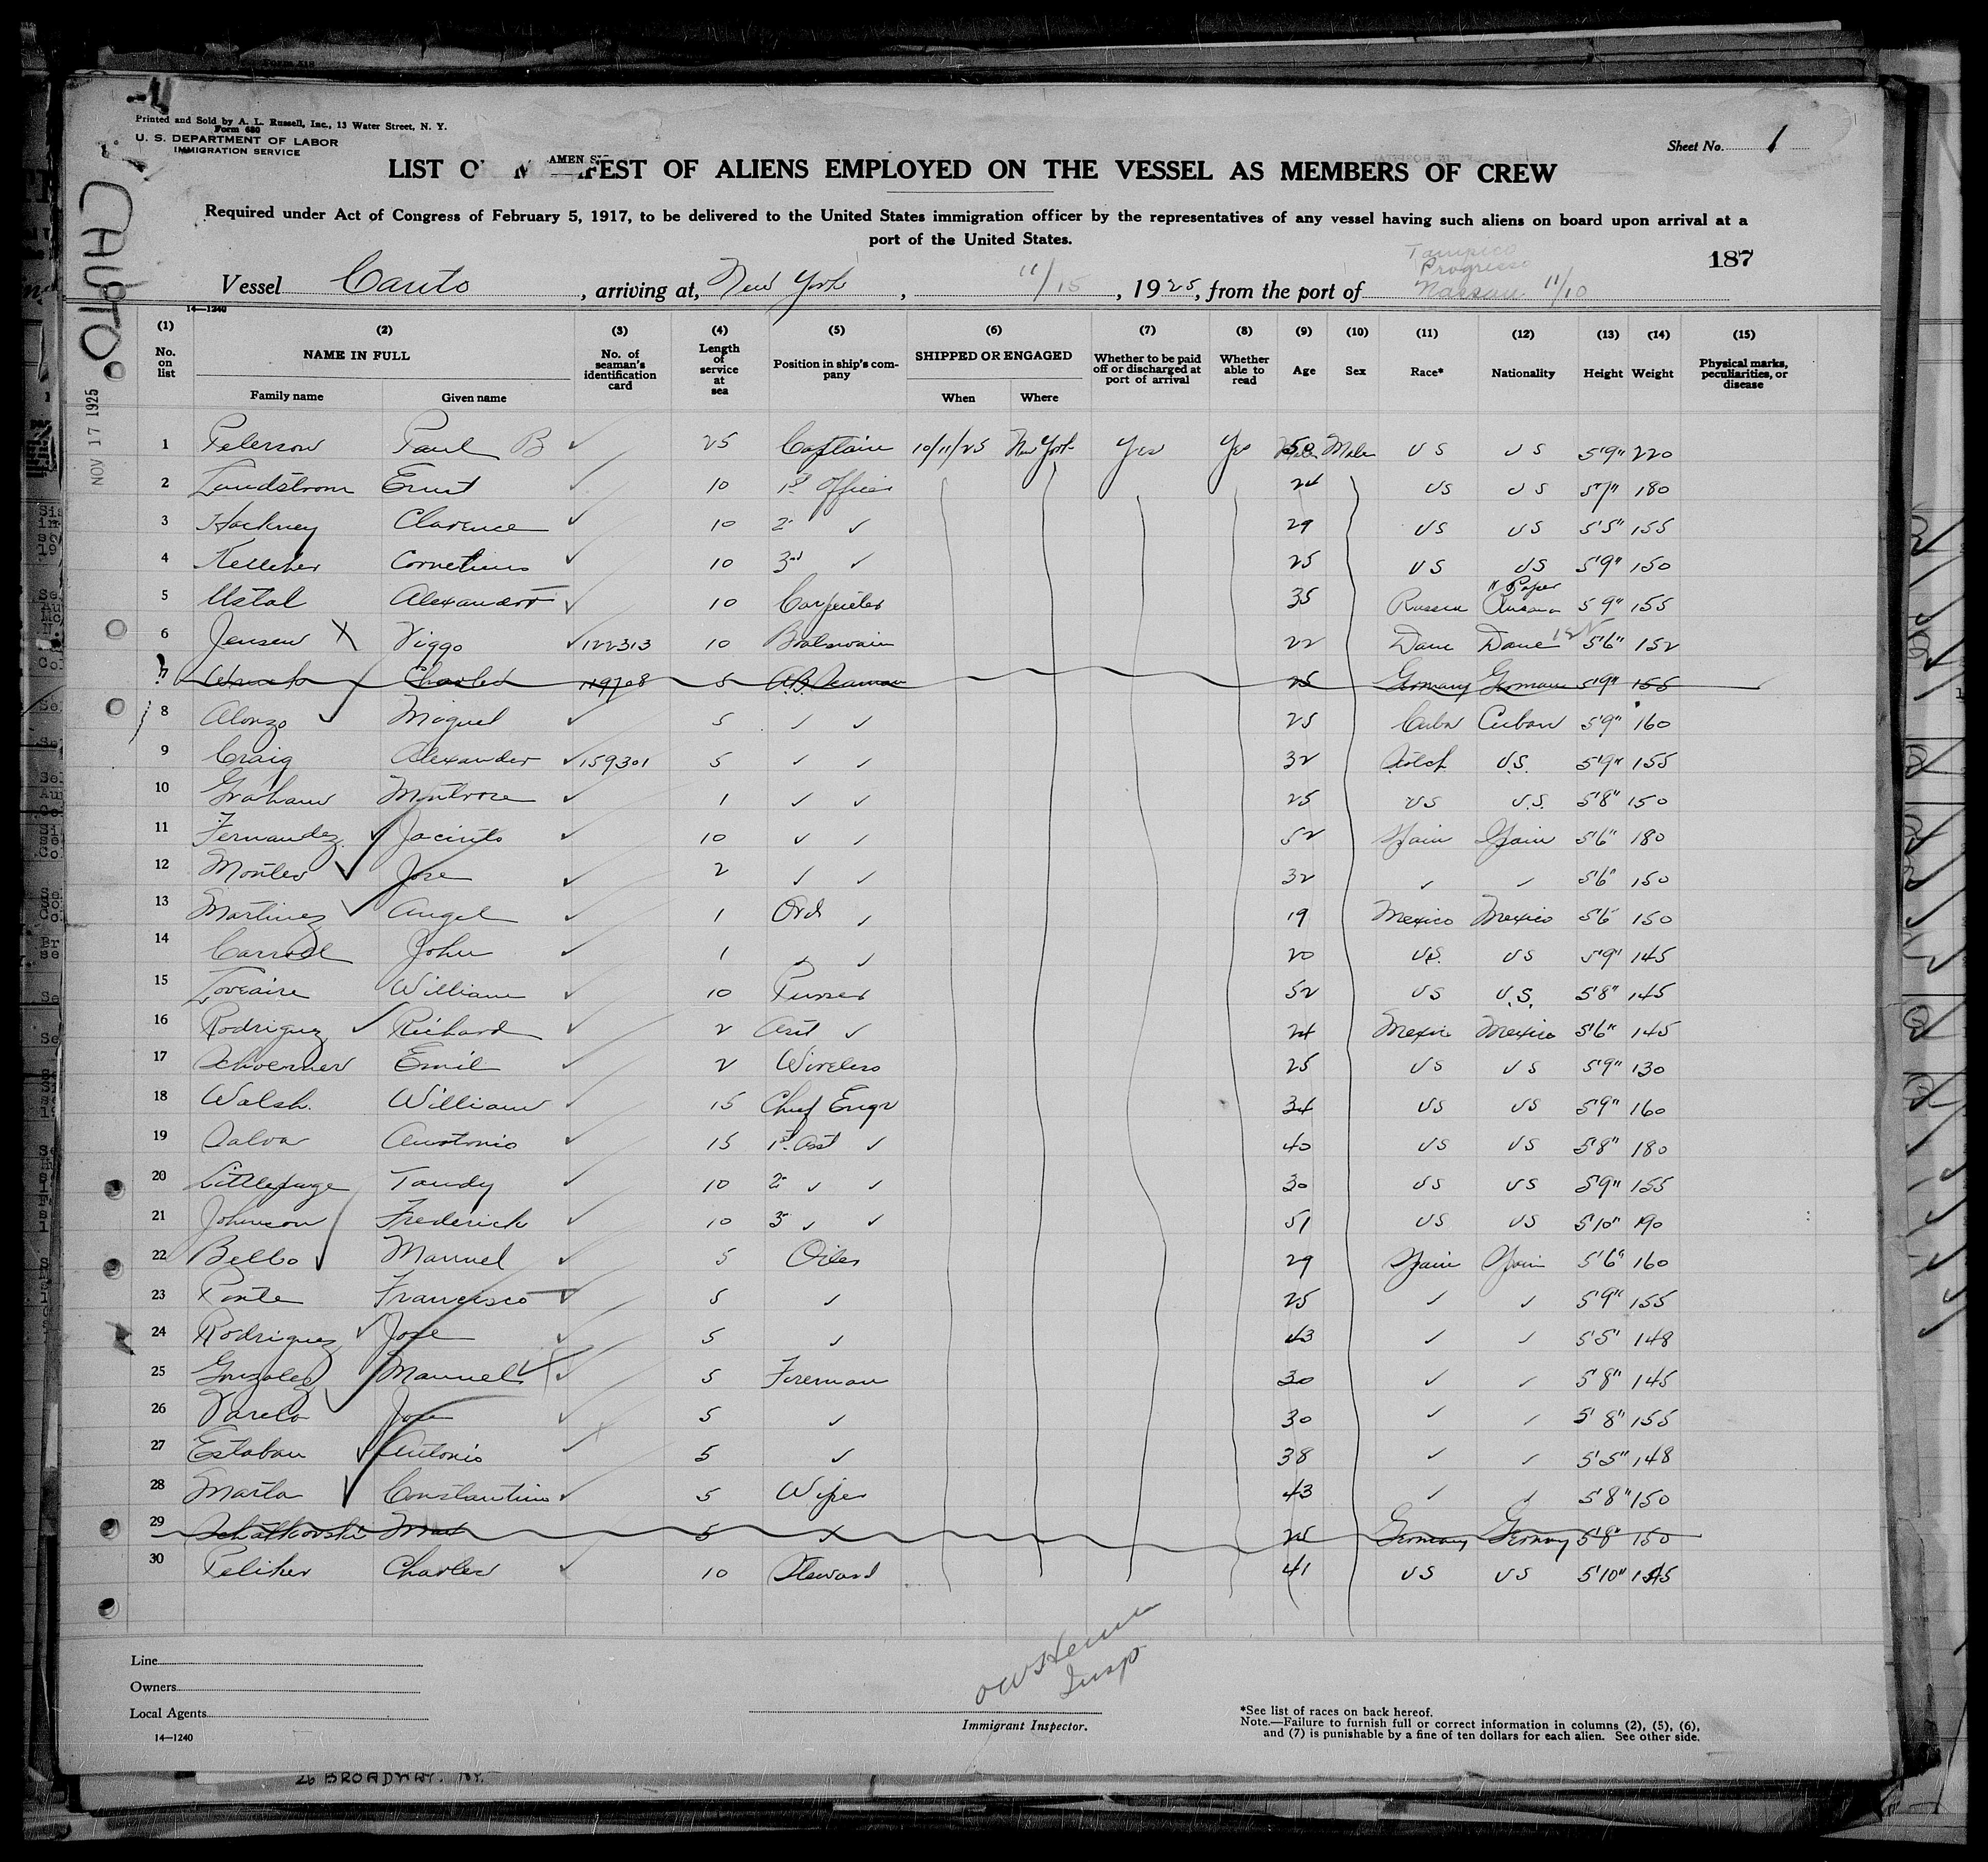 Printed and Sold by A. L. Russell, Inc., 13 Water Street, N. Y.
Form 680
U. S. DEPARTMENT OF LABOR
IMMIGRATION SERVICE
Sheet No. 1
LIST OF MANIFEST OF ALIENS EMPLOYED ON THE VESSEL AS MEMBERS OF CREW
Required under Act of Congress of February 5, 1917, to be delivered to the United States immigration officer by the representatives of any vessel having such aliens on board upon arrival at a
port of the United States.
CAUTO
NOV 17 1925
187
Tampico
Progreso
Vessel Cauto, arriving at, New York, 11/15, 1925, from the port of Nassau 11/10
14—1240
(1) No. on list (2) NAME IN FULL Family name Given name (3) No. of seaman's identification card (4) Length of service at sea (5) Position in ship's company (6) SHIPPED OR ENGAGED When Where (7) Whether to be paid off or discharged at port of arrival (8) Whether able to read (9) Age (10) Sex (11) Race* (12) Nationality (13) Height (14) Weight (15) Physical marks, peculiarities, or disease
1 Peterson Paul B ✓ 25 Captain 10/11/25 New York Yes Yes 50 Male US US 5'9" 220
2 Lundstrom Ernst ✓ 10 1st Officer 24 US US 5'7" 180
3 Hackney Clarence ✓ 10 2" ✓ 29 US US 5'5" 155
4 Kelleher Cornelius ✓ 10 3rd ✓ 25 US US 5'9" 150
5 Ustal Alexander ✓ 10 Carpenter 35 Russia 5'9" 155
6 Jensen X Viggo ✓ 122313 10 Boatswain 22 Dane Dane 5'6" 152
7 Charles 119708 5 A.B. Seaman 25 Germany German 5'9" 155
8 Alonzo ✓ Miguel ✓ 5 ✓ ✓ 25 Cuba Cuban 5'9" 160
9 Craig Alexander ✓ 159301 5 ✓ ✓ 32 Scotch U.S. 5'9" 155
10 Graham Montrose ✓ 1 ✓ ✓ 25 US U.S. 5'8" 150
11 Fernandez ✓ Jacinto ✓ 10 ✓ ✓ 52 Spain Spain 5'6" 180
12 Montes ✓ Jose ✓ 2 ✓ ✓ 32 ✓ ✓ 5'6" 150
13 Martinez ✓ Angel ✓ 1 Ord ✓ 19 Mexico Mexico 5'6" 150
14 Carroll John ✓ 1 ✓ ✓ 20 US. US 5'9" 145
15 Loveaire William ✓ 10 Purser 52 US U.S. 5'8" 145
16 Rodriguez ✓ Richard ✓ 2 Asst ✓ 24 Mexico Mexico 5'6" 145
17 Schoerner Emil ✓ 2 Wireless 25 US US 5'9" 130
18 Walsh. William ✓ 15 Chief Engr 34 US US 5'9" 160
19 Salva Austonio ✓ 15 1st Asst ✓ 40 US US 5'8" 180
20 Littlepage Tandy ✓ 10 2" ✓ ✓ 30 US US 5'9" 155
21 Johnson Frederick ✓ 10 3" ✓ ✓ 51 US US 5'10" 190
22 Bello ✓ Manuel ✓ 5 Oiler 29 Spain Spain 5'6" 160
23 Ponte Francisco ✓ 5 ✓ 25 ✓ ✓ 5'9" 155
24 Rodriguez ✓ Jose ✓ 5 ✓ 43 ✓ ✓ 5'5" 148
25 Gonzales Manuel ✓ 5 Fireman 30 ✓ ✓ 5'8" 145
26 Varela ✓ Jose ✓ 5 ✓ 30 ✓ ✓ 5'8" 155
27 Estaban ✓ Antonio ✓ 5 ✓ 38 ✓ ✓ 5'5" 148
28 Marta ✓ Constantino ✓ 5 Wiper 43 ✓ ✓ 5'8" 150
29 Schatkovski Max 5 25 Germany Germany 5'8" 150
30 Peliher Charles ✓ 10 Steward 41 US US 5'10" 145
Insp
Line
Owners
Local Agents
14—1240
Immigrant Inspector.
*See list of races on back hereof.
Note.—Failure to furnish full or correct information in columns (2), (5), (6),
and (7) is punishable by a fine of ten dollars for each alien. See other side.
26 BROADWAY. NY.